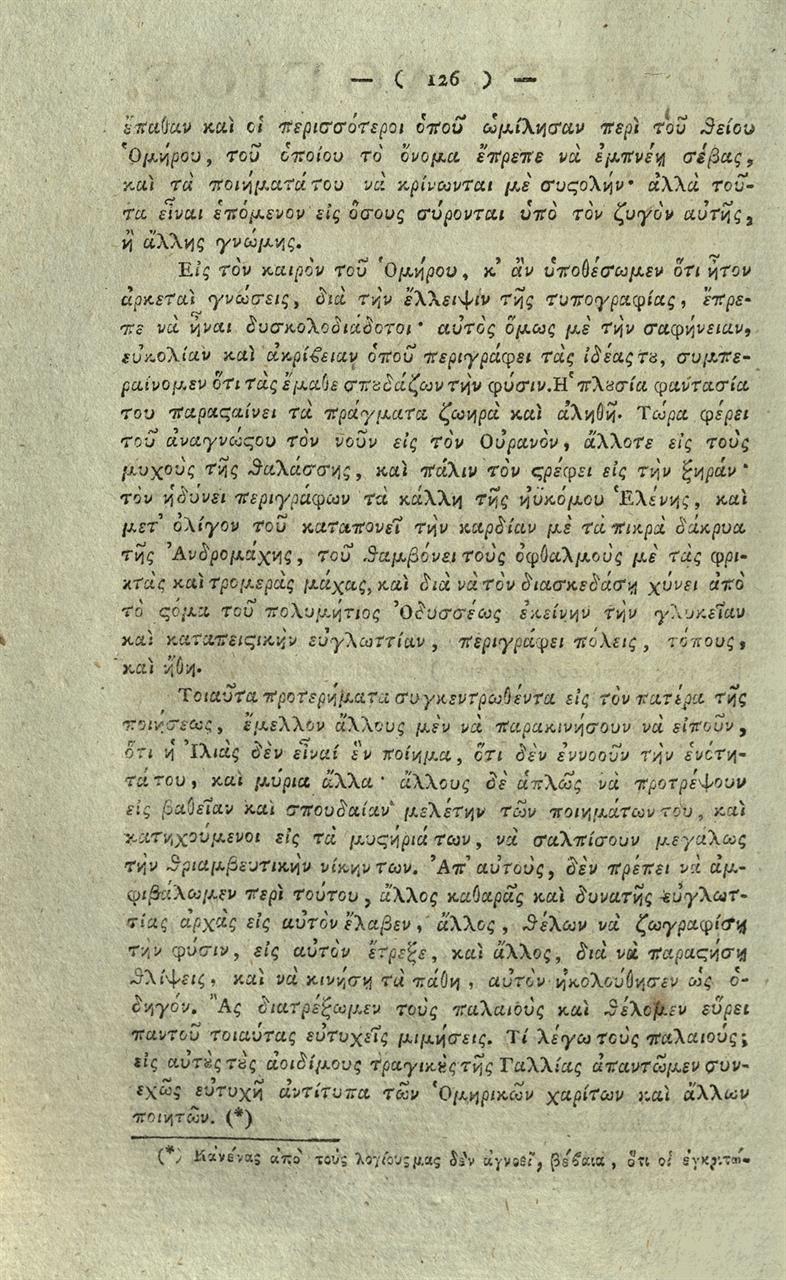 — ( 126 ) —
ἔπαθαν καὶ οἱ περισσότεροι ὁποῦ ὡμίλησαν περὶ τοῦ θείου
Ὁμήρου, τοῦ ὁποίου τὸ ὄνομα ἔπρεπε νὰ ἐμπνέῃ σέβας,
καὶ τὰ ποιήματά του νὰ κρίνωνται μὲ συϛολήν· ἀλλὰ τοῦ-
τα εἶναι ἑπόμενον εἰς ὅσους σύρονται ὑπὸ τὸν ζυγὸν αὐτῆς,
ἢ ἄλλης γνώμης.
Εἰς τὸν καιρὸν τοῦ Ὁμήρου, κ' ἂν ὑποθέσωμεν ὅτι ἦτον
ἀρκεταὶ γνώσεις, διὰ τὴν ἔλλειψιν τῆς τυπογραφίας, ἔπρε-
πε νὰ ἦναι δυσκολοδιάδοτοι· αὐτὸς ὅμως μὲ τὴν σαφήνειαν,
εὐκολίαν καὶ ἀκρίβειαν ὁποῦ περιγράφει τὰς ἰδέας τȣ, συμπε-
ραίνομεν ὅτι τὰς ἔμαθε σπȣδάζων τὴν φύσιν. Ἡ πλȣσία φαντασία
του παραϛαίνει τὰ πράγματα ζωηρὰ καὶ ἀληθῆ. Τώρα φέρει
τοῦ ἀναγνώϛου τὸν νοῦν εἰς τὸν Οὐρανὸν, ἄλλοτε εἰς τοὺς
μυχοὺς τῆς θαλάσσης, καὶ πάλιν τὸν ϛρέφει εἰς τὴν ξηράν·
τὸν ἡδύνει περιγράφων τὰ κάλλη τῆς ἠϋκόμου Ἑλένης, καὶ
μετ' ὀλίγον τοῦ καταπονεῖ τὴν καρδίαν μὲ τὰ πικρὰ δάκρυα
τῆς Ἀνδρομάχης, τοῦ θαμβόνει τοὺς ὀφθαλμοὺς μὲ τὰς φρι-
κτὰς καὶ τρομερὰς μάχας, καὶ διὰ νὰ τὸν διασκεδάσῃ χύνει ἀπὸ
τὸ ϛόμα τοῦ πολυμήτιος Ὀδυσσέως ἐκείνην τὴν γλυκεῖαν
καὶ καταπειϛικὴν εὐγλωττίαν, περιγράφει πόλεις, τόπους,
καὶ ἤθη.
Τοιαῦτα προτερήματα συγκεντρωθέντα εἰς τὸν πατέρα τῆς
ποιήσεως, ἔμελλον ἄλλους μὲν νὰ παρακινήσουν νὰ εἰποῦν,
ὅτι ἡ Ἰλιὰς δὲν εἶναί ἓν ποίημα, ὅτι δὲν ἐννοοῦν τὴν ἑνότη-
τά του, καὶ μύρια ἄλλα· ἄλλους δὲ ἁπλῶς νὰ προτρέψουν
εἰς βαθεῖαν καὶ σπουδαίαν μελέτην τῶν ποιημάτων του, καὶ
κατηχούμενοι εἰς τὰ μυϛήριά των, νὰ σαλπίσουν μεγάλως
τὴν θριαμβευτικὴν νίκην των. Ἀπ' αὐτοὺς, δὲν πρέπει νὰ ἀμ-
φιβάλωμεν περὶ τούτου, ἄλλος καθαρᾶς καὶ δυνατῆς εὐγλωτ-
τίας ἀρχὰς εἰς αὐτὸν ἔλαβεν, ἄλλος, θέλων νὰ ζωγραφίσῃ
τὴν φύσιν, εἰς αὐτὸν ἔτρεξε, καὶ ἄλλος, διὰ νὰ παραϛήσῃ
θλίψεις, καὶ νὰ κινήσῃ τὰ πάθη, αὐτὸν ἠκολούθησεν ὡς ὁ-
δηγόν. Ἂς διατρέξωμεν τοὺς παλαιοὺς καὶ θέλομεν εὕρει
παντοῦ τοιαύτας εὐτυχεῖς μιμήσεις. Τί λέγω τοὺς παλαιούς;
εἰς αὐτȣ̀ς τȣ̀ς ἀοιδίμους τραγικȣ̀ς τῆς Γαλλίας ἀπαντῶμεν συν-
εχῶς εὐτυχῆ ἀντίτυπα τῶν Ὁμηρικῶν χαρίτων καὶ ἄλλων
ποιητῶν. (*)
(*) Κανένας ἀπὸ τοὺς λογίους μας δὲν ἀγνοεῖ, βέβαια, ὅτι οἱ ἐγκριτώ-